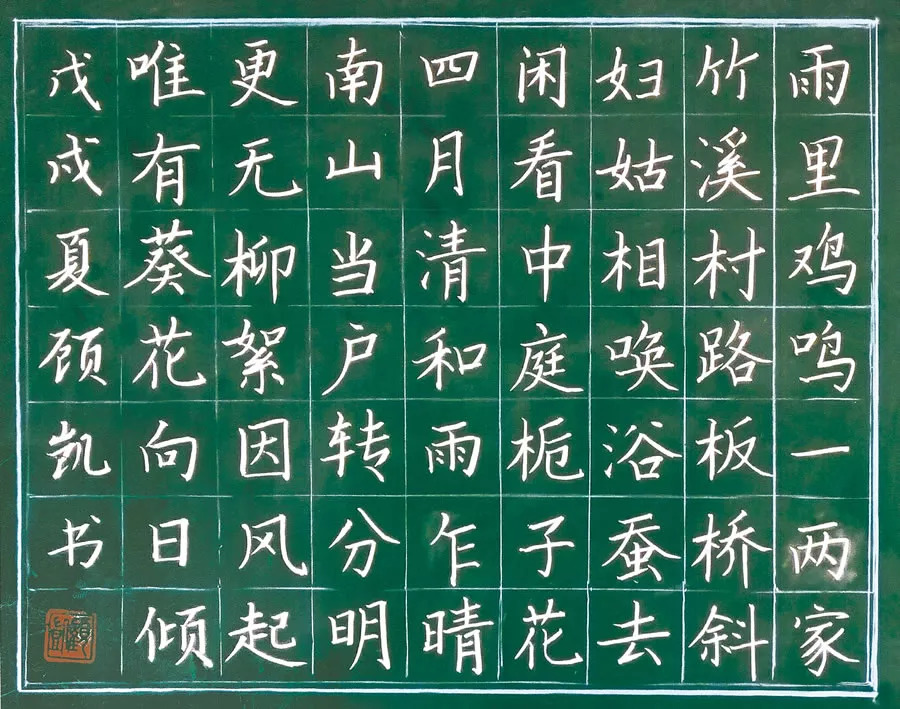 雨里鸡鸣一两家
竹溪村路板桥斜
妇姑相唤浴蚕去
闲看中庭栀子花
四月清和雨乍晴
南山当户转分明
更无柳絮因风起
唯有葵花向日倾
戊戌夏顾凯书